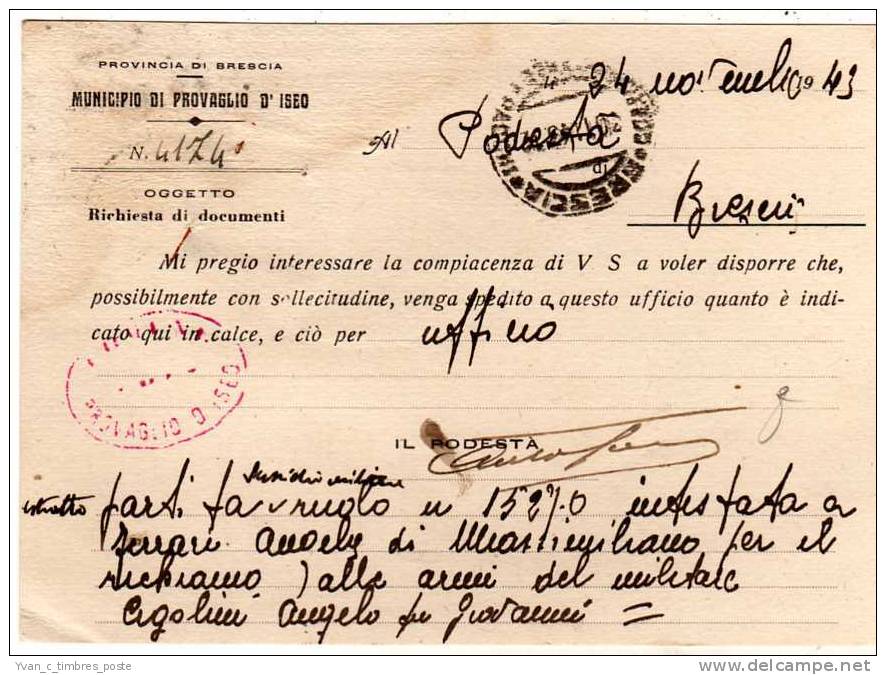 PROVINCIA DI BRESCIA
MUNICIPIO DI PROVAGLIO D' ISEO
N. 4174
OGGETTO
Richiesta di documenti
24 novembre 1943
Al Podestà
di
Brescia
BRESCIA
Mi pregio interessare la compiacenza di V S a voler disporre che,
possibilmente con sollecitudine, venga spedito a questo ufficio quanto è indi-
cato qui in calce, e ciò per ufficio
PROVAGLIO D ISEO
IL PODESTÀ
sussidio militare
estratto partita ruolo n 15270 intestata a
Ferrari Angelo di Massimiliano per il
richiamo alle armi del militare
Cigolini Angelo fu Giovanni =
Yvan_c_timbres_poste
delcampe.net